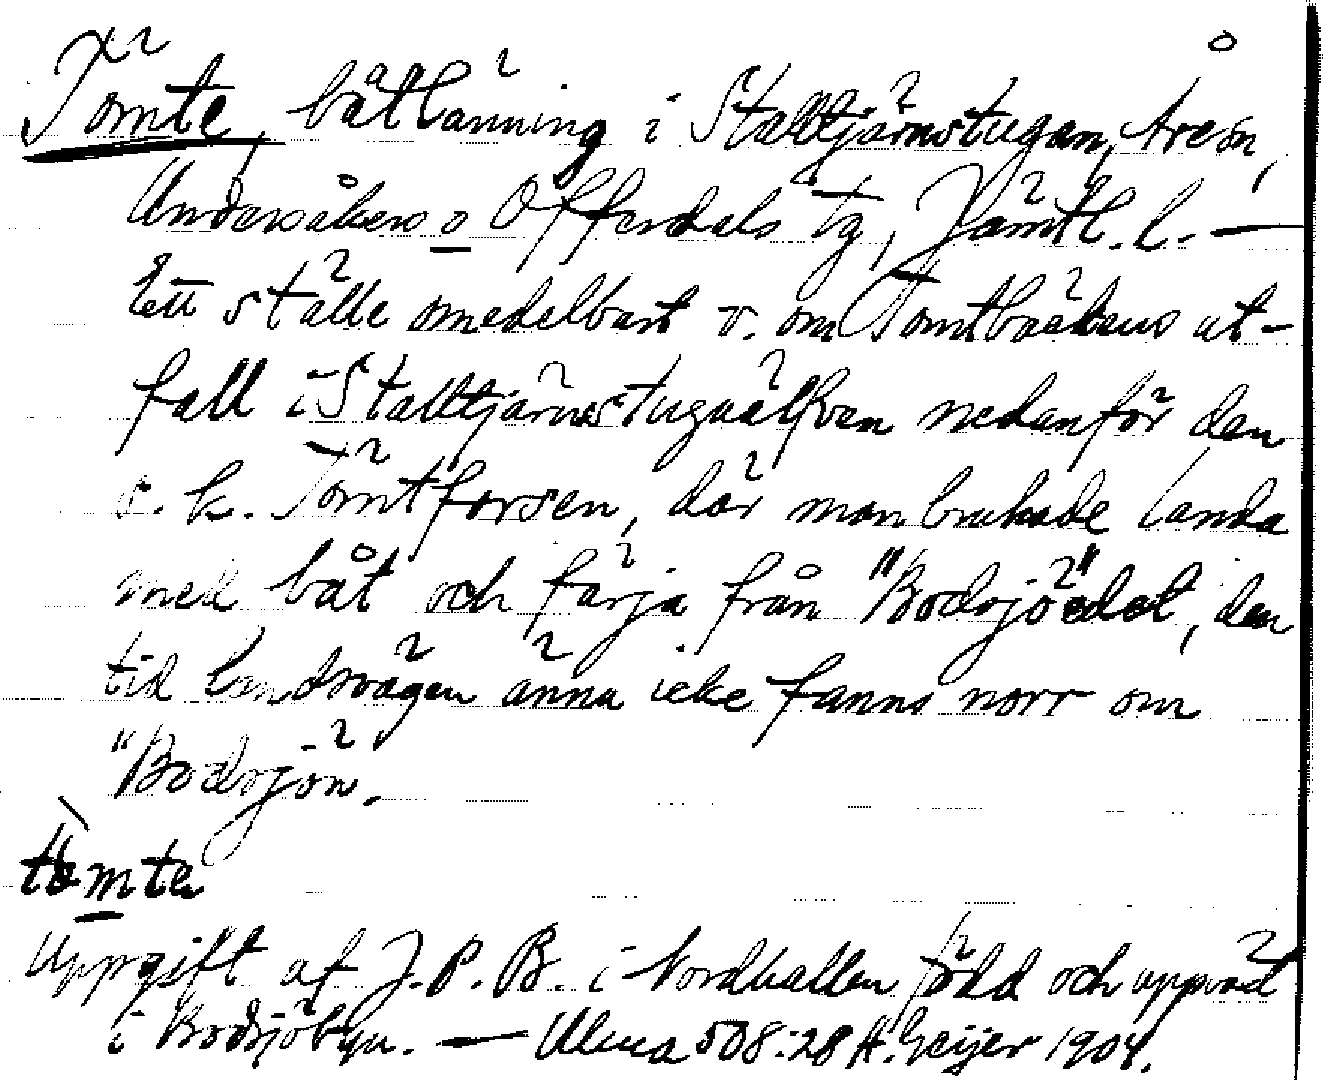 Tömte, båtlänning i Stalltjärnstugan, Åresn,
Undersåkers o Offerdals tg, Jämtl. l. —
Ett ställe omedelbart v. om Tömtbäckens ut-
fall i Stalltjärnstugaälfven nedanför den
s. k. Tömtforsen, där man brukade landa
med båt och färja från "Bodsjöedet", den
tid landsvägen ännu icke fanns norr om
"Bodsjön.
tömte
Uppgift af J. P. B. i Nordhallen född och uppväxt
i Bodsjöbyn. — Ulma 508:28 H. Geijer 1908.